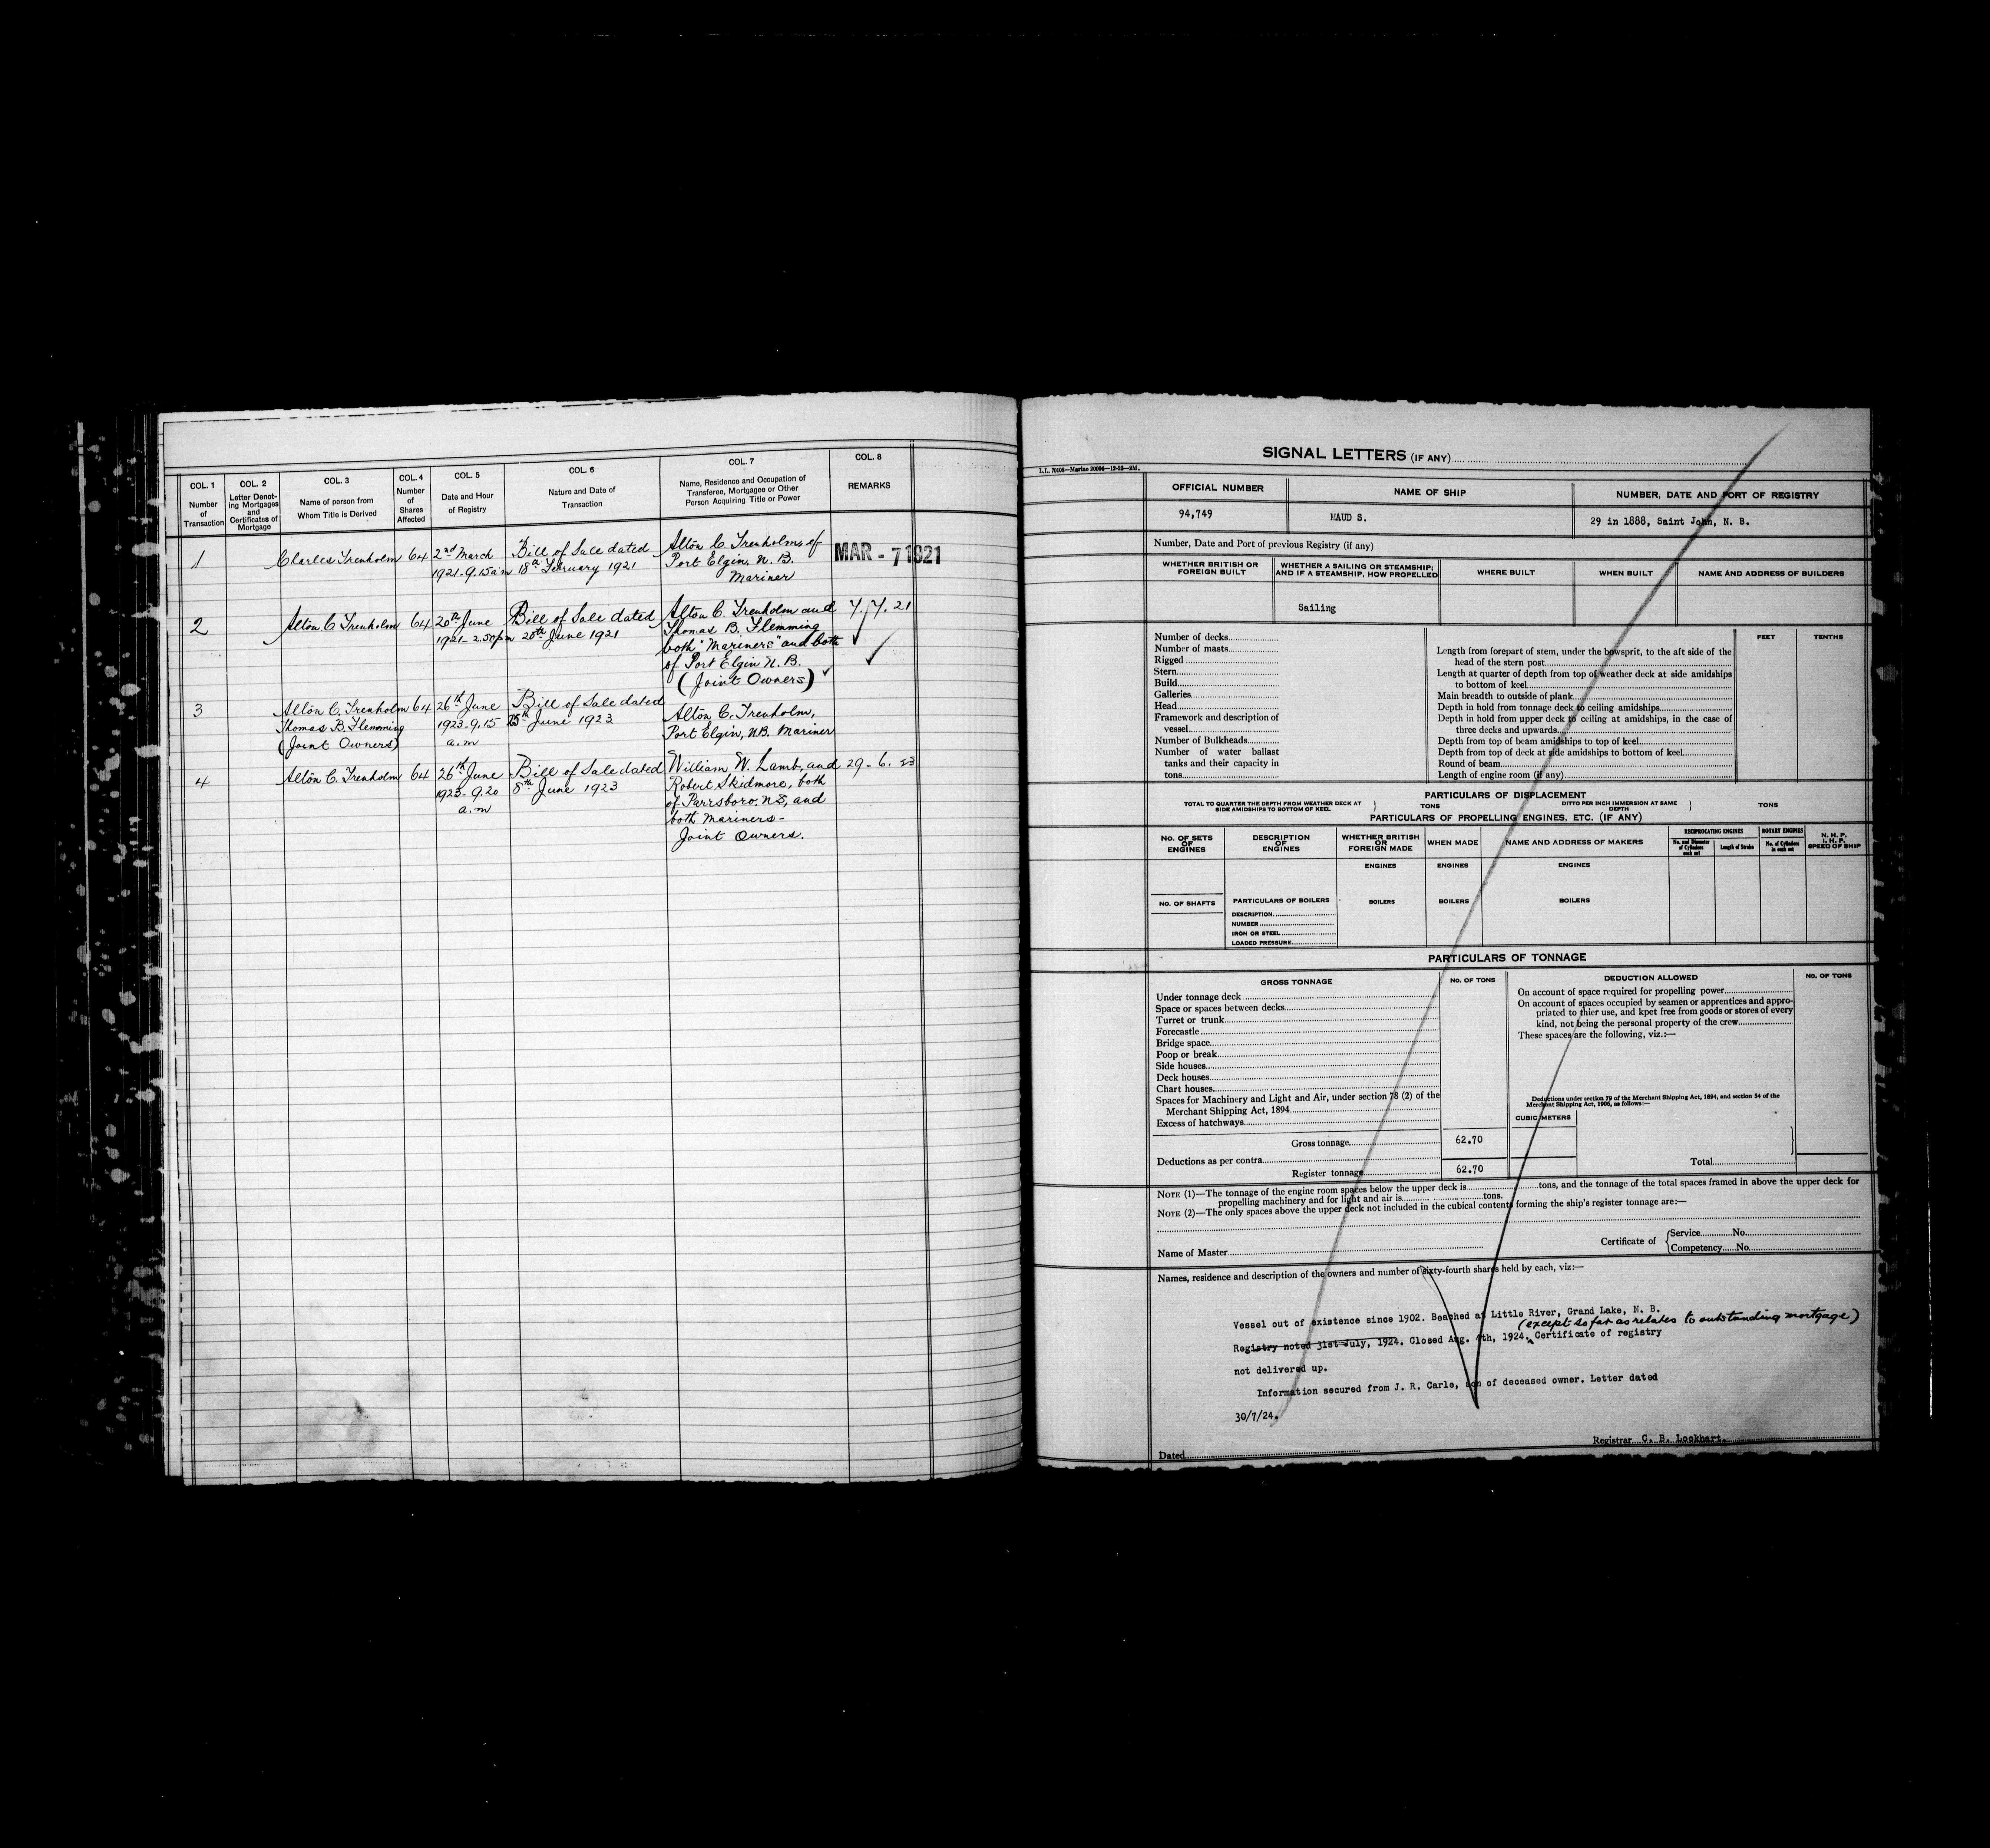 COL. 1
Number
of
Transaction
COL. 2
Letter Denot-
ing Mortgages
and
Certificates of
Mortgage
COL. 3
Name of person from
Whom Title is Derived
COL. 4
Number
of
Shares
Affected
COL. 5
Date and Hour
of Registry
COL. 6
Nature and Date of
Transaction
COL. 7
Name, Residence and Occupation of
Transferee, Mortgagee or Other
Person Acquiring Title or Power
COL. 8
REMARKS
1
Charles Trenholm
64
2nd March
1921-9.15 am
Bill of Sale dated
18th February 1921
Alton C. Trenholm, of
Port Elgin, N. B.
Mariner
MAR - 7 1921
2
Alton C Trenholm
64
20th June
1921-2.50pm
Bill of Sale dated
20th June 1921
Alton C. Trenholm and
Thomas B. Flemming
both "Mariners" and both
of Port Elgin N. B.
(Joint Owners)
7.7.21
3
Alton C. Trenholm
Thomas B. Flemming
(Joint Owners)
64
26th June
1923-9.15
a.m
Bill of Sale dated
25th June 1923
Alton C. Trenholm,
Port Elgin, NB. Mariner
4
Alton C. Trenholm
64
26th June
1923-9.20
a.m
Bill of Sale dated
8th June 1923
William W. Lamb, and
Robert Skidmore, both
of Parrsboro, NS, and
both Mariners-
Joint Owners.
29-6.23
SIGNAL LETTERS (IF ANY)
OFFICIAL NUMBER
94,749
NAME OF SHIP
MAUD S.
NUMBER, DATE AND PORT OF REGISTRY
29 in 1888, Saint John, N. B.
Number, Date and Port of previous Registry (if any)
WHETHER BRITISH OR
FOREIGN BUILT
WHETHER A SAILING OR STEAMSHIP;
AND IF A STEAMSHIP, HOW PROPELLED
Sailing
WHERE BUILT
WHEN BUILT
NAME AND ADDRESS OF BUILDERS
Number of decks
Number of masts
Rigged
Stern
Build
Galleries
Head
Framework and description of
vessel
Number of Bulkheads
Number of water ballast
tanks and their capacity in
tons
FEET
TENTHS
Length from forepart of stem, under the bowsprit, to the aft side of the
head of the stern post
Length at quarter of depth from top of weather deck at side amidships
to bottom of keel
Main breadth to outside of plank
Depth in hold from tonnage deck to ceiling amidships
Depth in hold from upper deck to ceiling at amidships, in the case of
three decks and upwards
Depth from top of beam amidships to top of keel
Depth from top of deck at side amidships to bottom of keel
Round of beam
Length of engine room (if any)
PARTICULARS OF DISPLACEMENT
TOTAL TO QUARTER THE DEPTH FROM WEATHER DECK AT
SIDE AMIDSHIPS TO BOTTOM OF KEEL
TONS
DITTO PER INCH IMMERSION AT SAME
DEPTH
TONS
PARTICULARS OF PROPELLING ENGINES, ETC. (IF ANY)
NO. OF SETS
OF
ENGINES
DESCRIPTION
OF
ENGINES
WHETHER BRITISH
OR
FOREIGN MADE
WHEN MADE
NAME AND ADDRESS OF MAKERS
RECIPROCATING ENGINES
No. and Diameter
of Cylinders
each set
Length of Stroke
ROTARY ENGINES
No. of Cylinders
in each set
N. H. P.
I. H. P.
SPEED OF SHIP
ENGINES
ENGINES
ENGINES
NO. OF SHAFTS
PARTICULARS OF BOILERS
BOILERS
BOILERS
BOILERS
DESCRIPTION
NUMBER
IRON OR STEEL
LOADED PRESSURE
PARTICULARS OF TONNAGE
GROSS TONNAGE
NO. OF TONS
DEDUCTION ALLOWED
NO. OF TONS
Under tonnage deck
Space or spaces between decks
Turret or trunk
Forecastle
Bridge space
Poop or break
Side houses
Deck houses
Chart houses
Spaces for Machinery and Light and Air, under section 78 (2) of the
Merchant Shipping Act, 1894
Excess of hatchways
Gross tonnage
62.70
Deductions as per contra
Register tonnage
62.70
On account of space required for propelling power
On account of spaces occupied by seamen or apprentices and appro-
priated to thier use, and kpet free from goods or stores of every
kind, not being the personal property of the crew
These spaces are the following, viz.:—
Deductions under section 79 of the Merchant Shipping Act, 1894, and section 54 of the
Merchant Shipping Act, 1906, as follows:—
CUBIC METERS
Total
NOTE (1)—The tonnage of the engine room spaces below the upper deck is tons, and the tonnage of the total spaces framed in above the upper deck for
propelling machinery and for light and air is tons.
NOTE (2)—The only spaces above the upper deck not included in the cubical contents forming the ship's register tonnage are:—
Name of Master
Certificate of
Service No.
Competency No.
Names, residence and description of the owners and number of sixty-fourth shares held by each, viz:—
Vessel out of existence since 1902. Beached at Little River, Grand Lake, N. B.
(except so far as relates to outstanding mortgage)
Registry noted 31st July, 1924. Closed Aug. 7th, 1924. Certificate of registry
not delivered up.
Information secured from J. R. Carle, son of deceased owner. Letter dated
30/7/24.
Dated
Registrar C. B. Lockhart